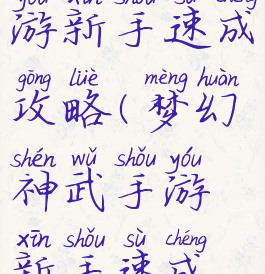 yóu xīn shǒu sù chéng
游新手速成
gōng lüè mèng huàn
攻略(梦幻
shén wǔ shǒu yóu
神武手游
xīn shǒu sù chéng
新手速成